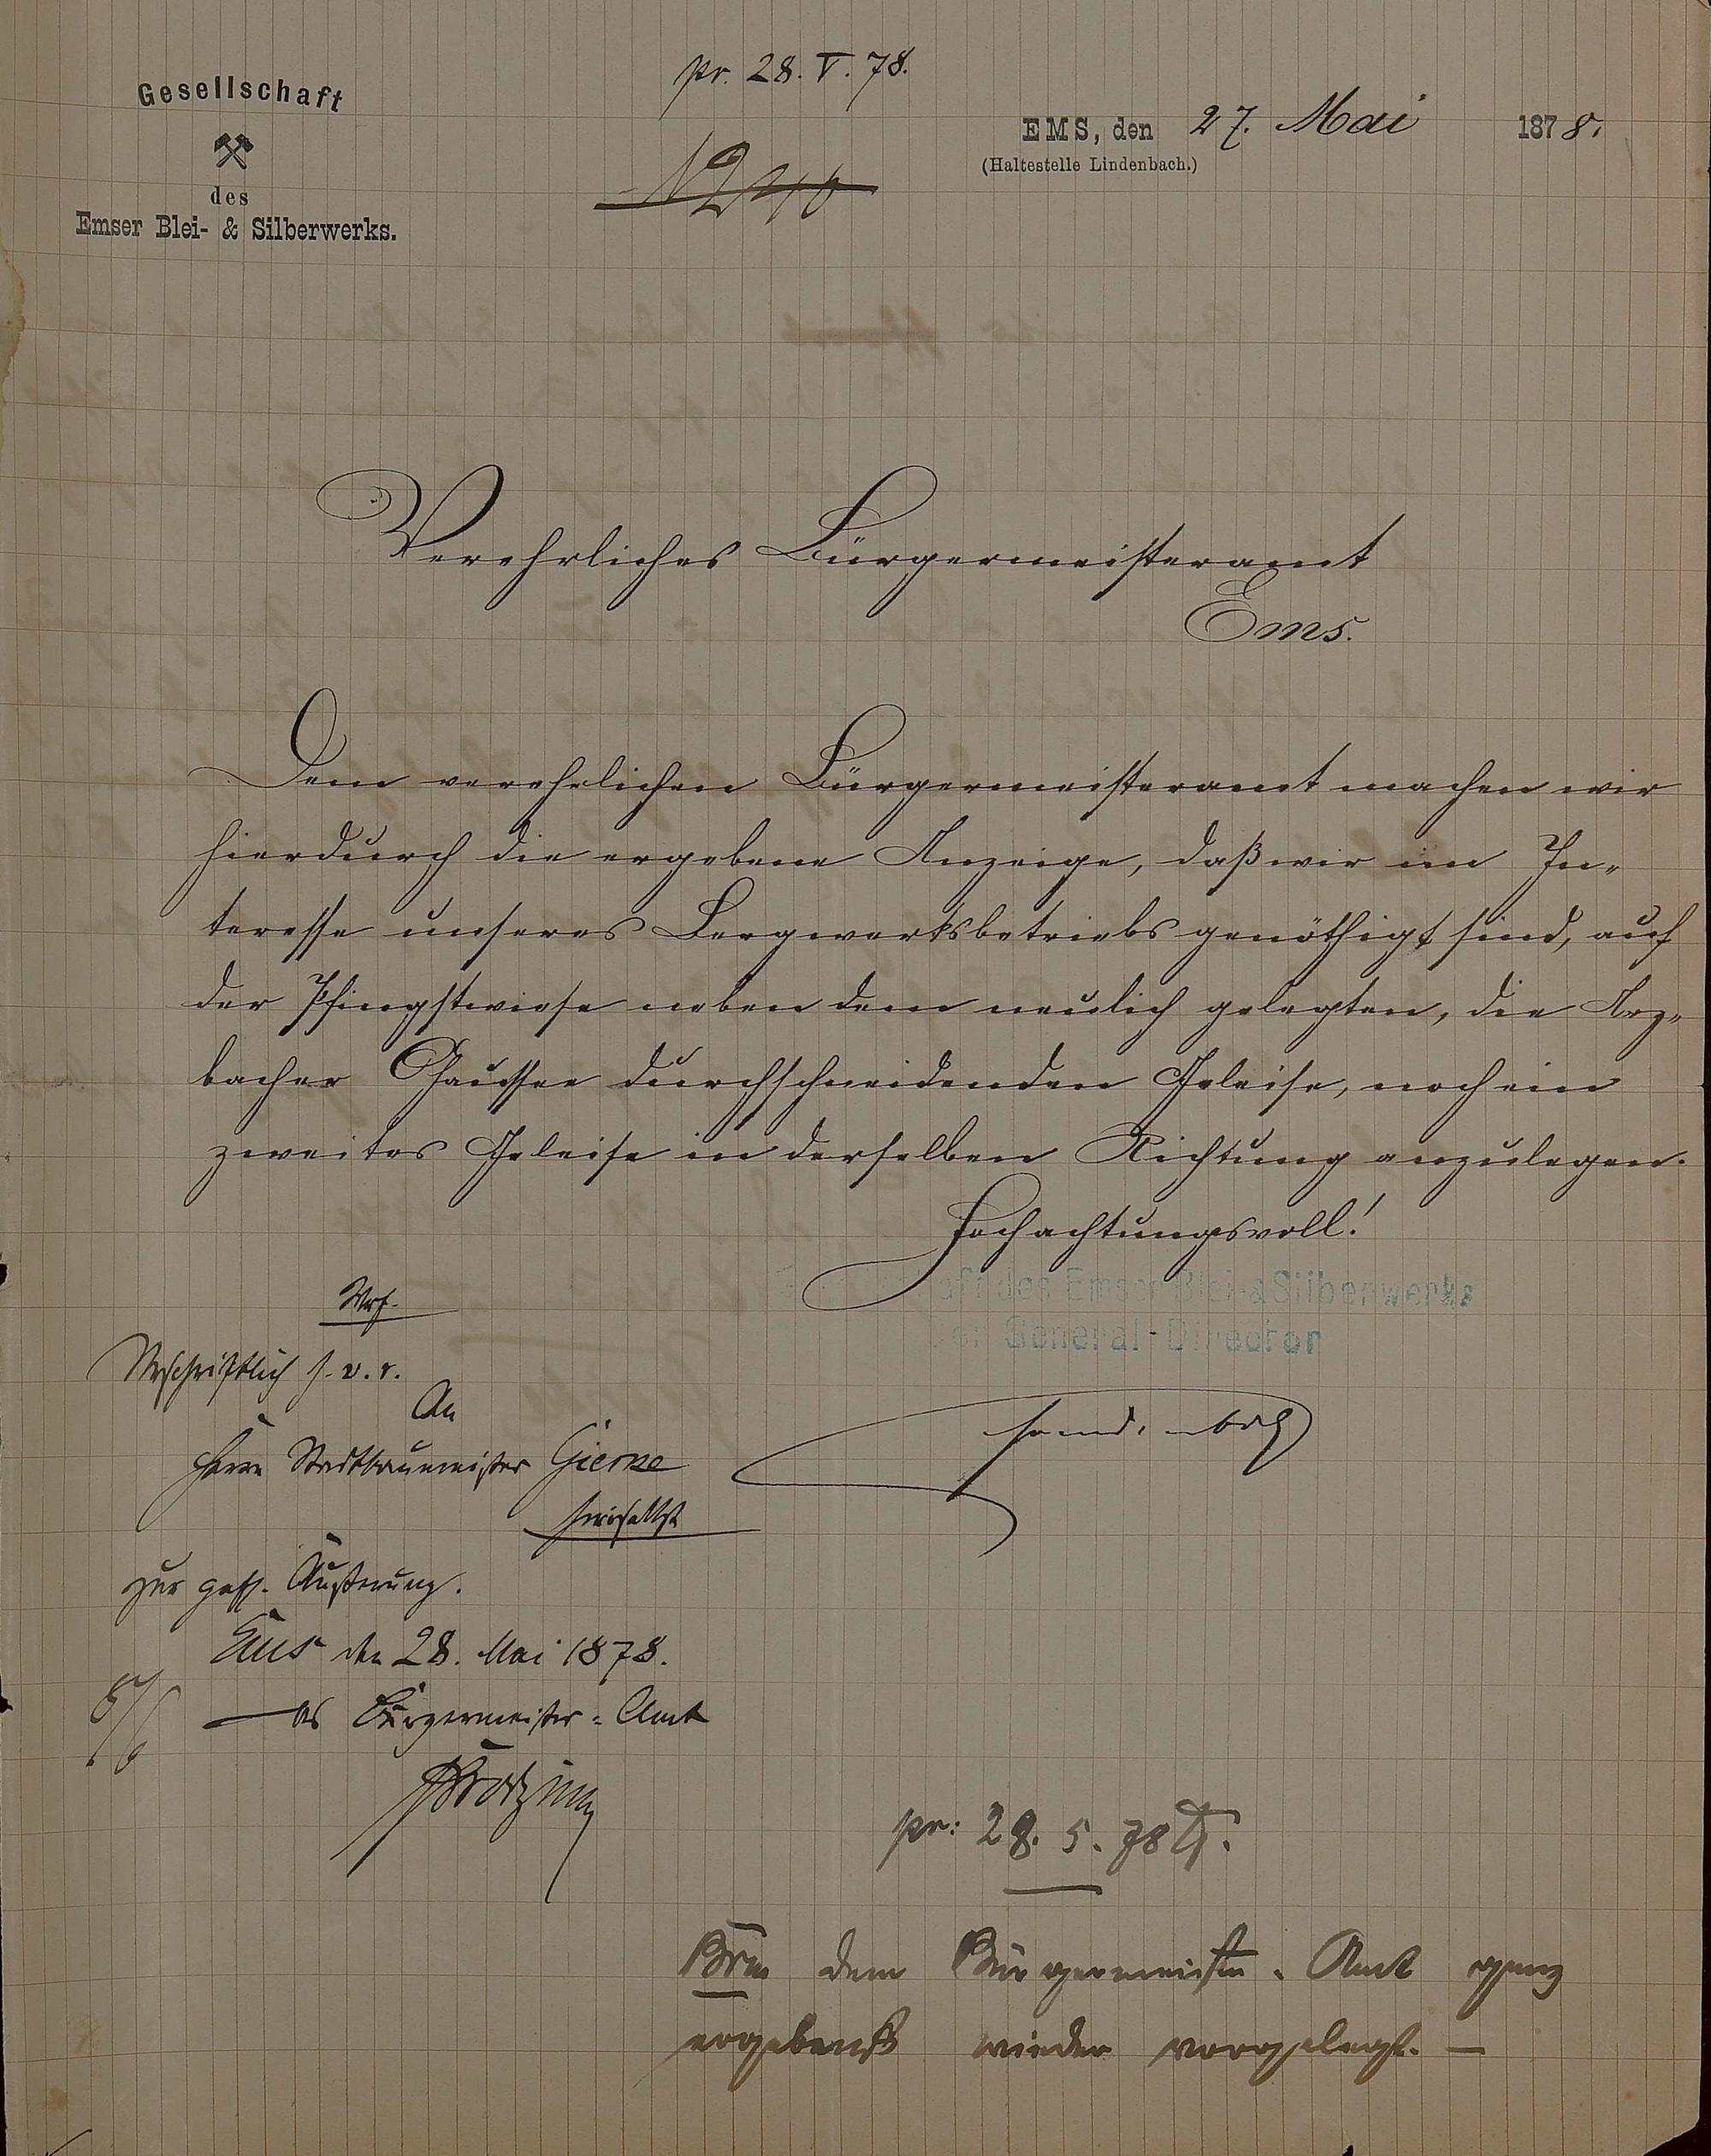 Gesellschaft
des
Emser Blei- & Silberwerks.
pr. 28. V. 78.
EMS, den 27. Mai 1878.
(Haltestelle Lindenbach.)
Verehrliches Bürgermeisteramt
Ems.
Dem verehrlichen Bürgermeisteramt machen wir
hierdurch die ergebene Anzeige, daß wir im In-
teresse unseres Bergwerksbetriebs genöthigt sind, auf
der Pfingstwiese neben dem neulich gelegten, die Arz-
bacher Chaussee durchschneidenden Geleise, noch ein
zweites Geleise in derselben Richtung anzulegen.
Hochachtungsvoll!
des Emser Blei- & Silberwerks
Der General-Director
Urschriftlich s. v. r.
An
Herrn Stadtbaumeister
hierselbst
zur gefl. Äußerung.
Ems den 28. Mai 1878.
Bürgermeister-Amt
pr: 28. 5. 78
dem Bürgermeister-Amt ganz
ergebenst wieder vorgelegt. —